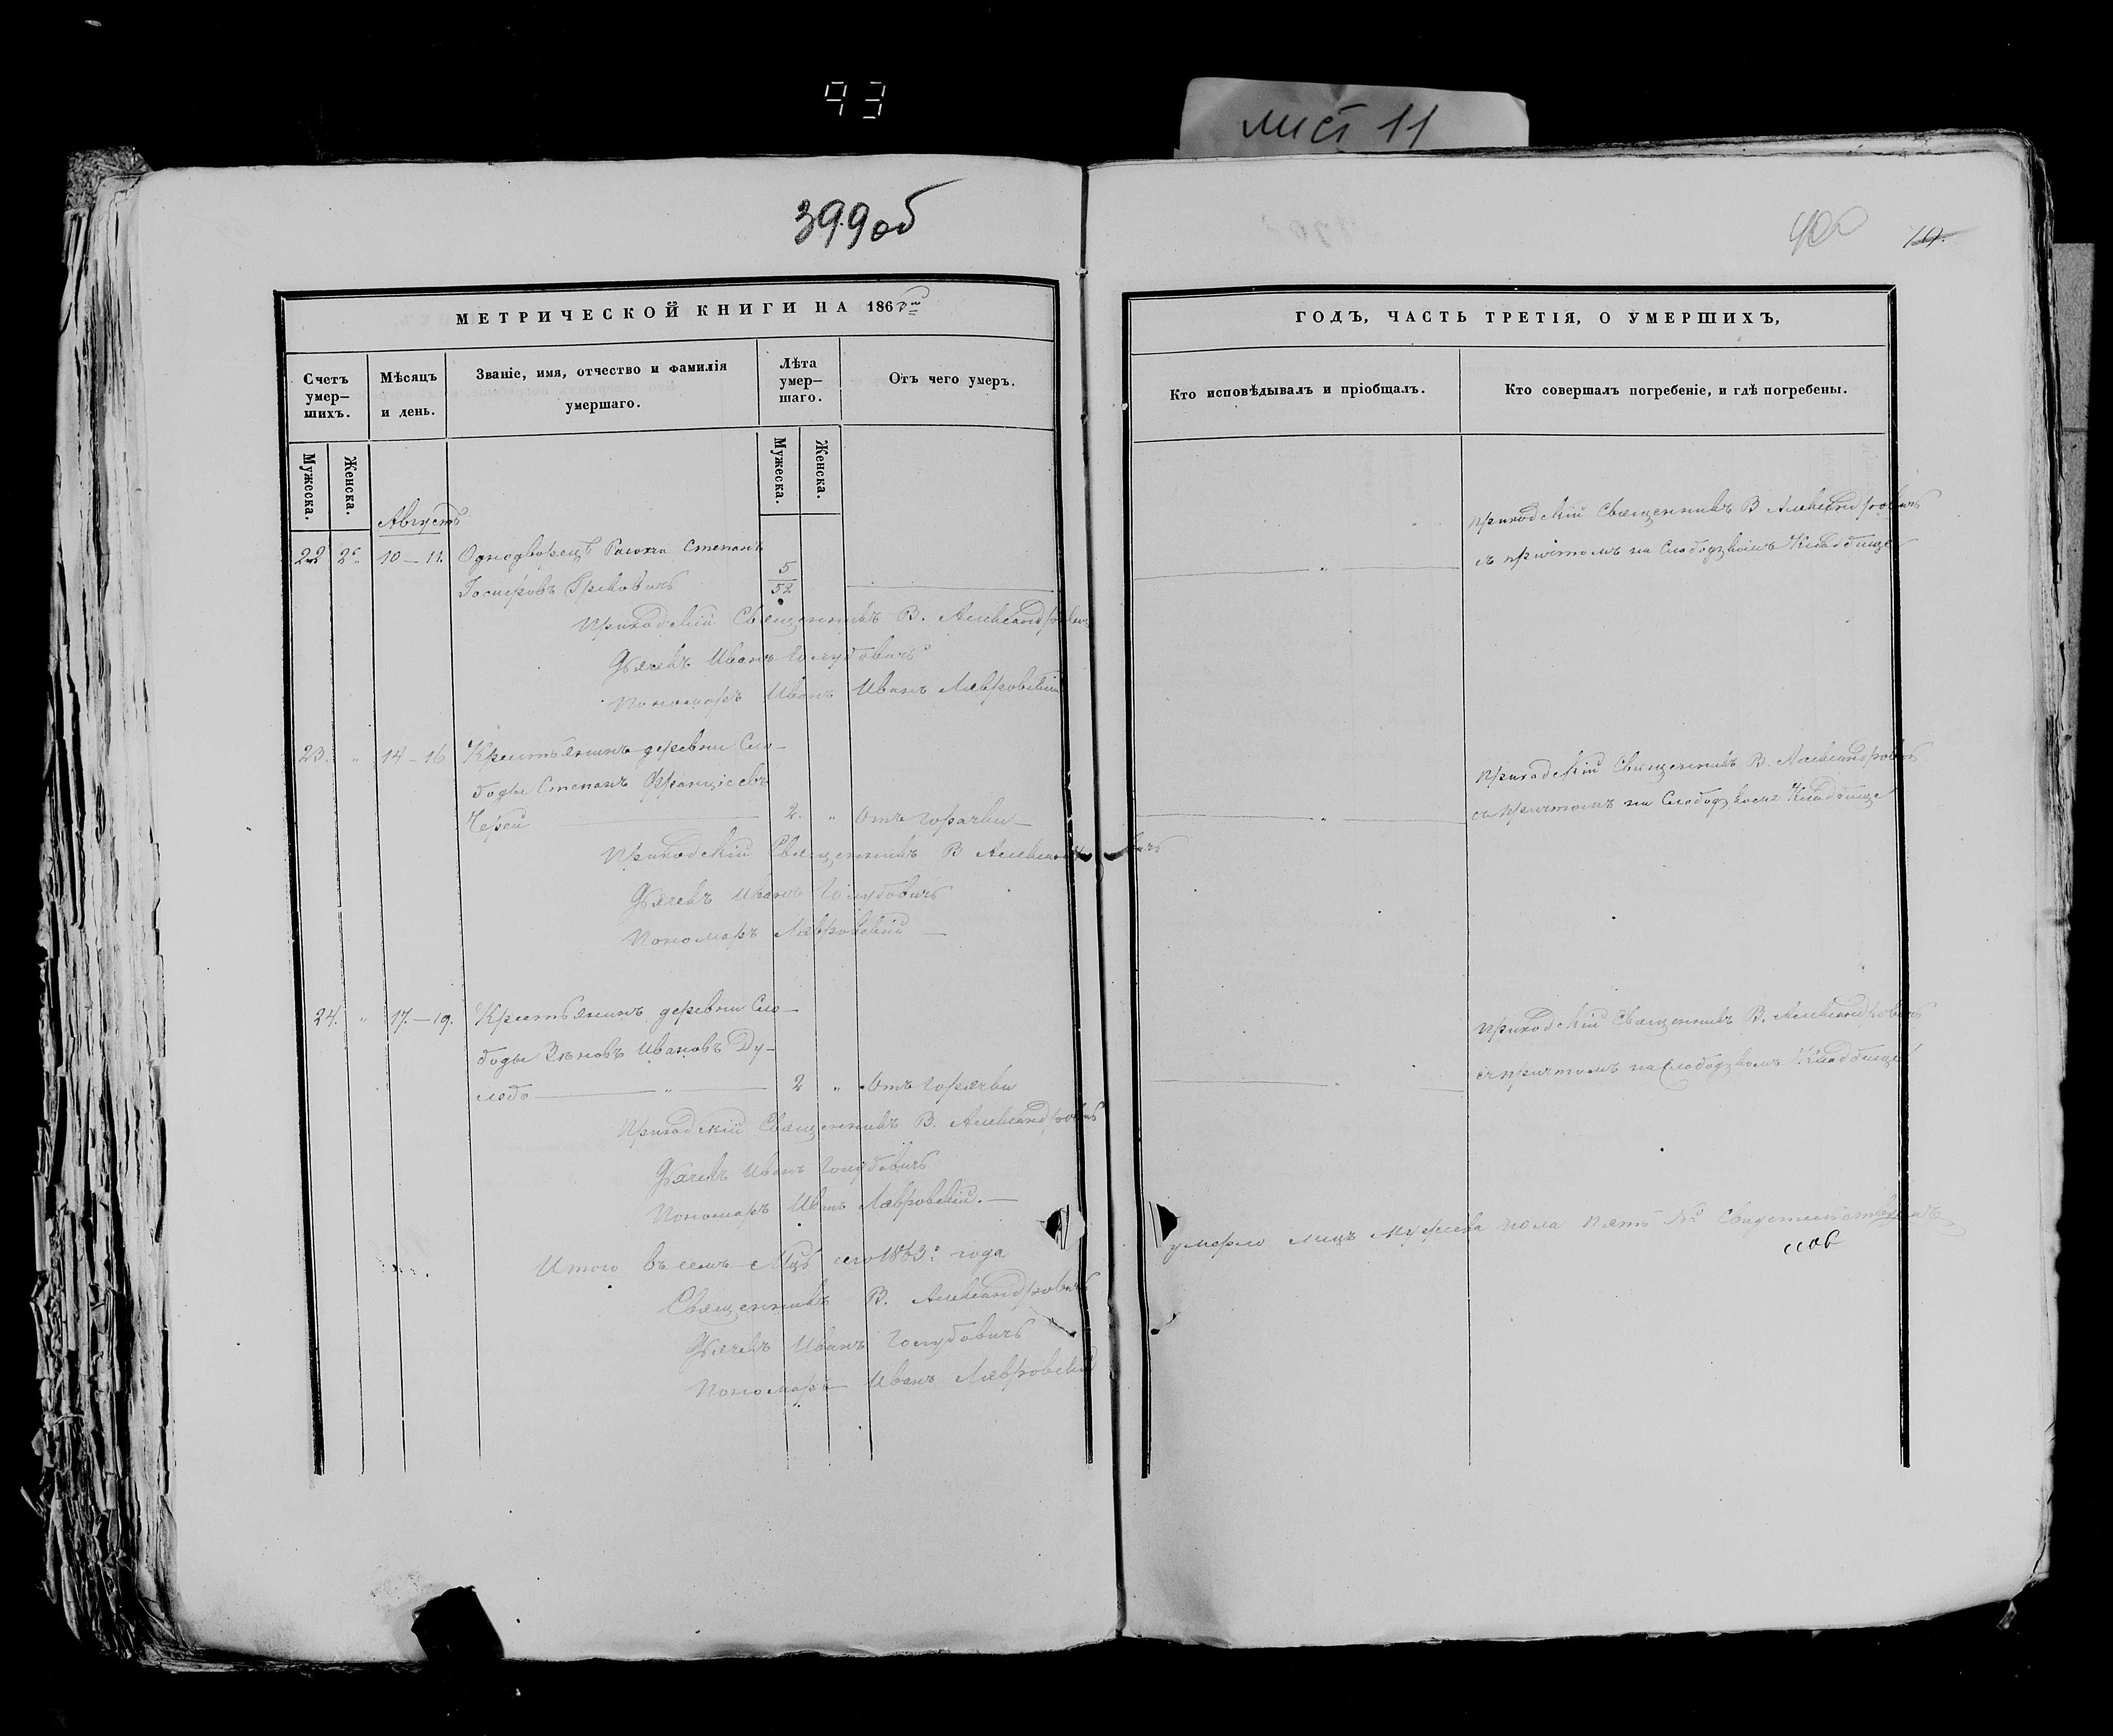 93
лист 11
399об
400
МЕТРИЧЕСКОЙ КНИГИ НА 1863
Счетъ умер-шихъ.
Мѣсяцъ и день.
Званіе, имя, отчество и фамилія умершаго.
Лѣта умер-шаго.
Отъ чего умеръ.
Мужеска.
Женска.
Мужеска.
Женска.
Августъ
22 10 – 11. Однодворецъ Степанъ
5
52
Приходскій Священникъ В. Александровичъ
Дьячекъ Иванъ Голубовичъ
Пономарь Иванъ Иванъ Лавровскій
23. „ 14 – 16 Крестьянинъ деревни Сло-
боды Степанъ Францісевъ
Черей 2. „ Отъ горячки
Приходскій Священникъ В Александровичъ
Дьячекъ Иванъ Голубовичъ
Пономарь Лавровскій
24. „ 17. – 19. Крестьянинъ деревни Сло-
боды Ивановъ Ду-
„ 2 „ Отъ горячки
Приходскій Священникъ В. Александровичъ
Дьячекъ Иванъ Голубовичъ
Пономарь Иванъ Лавровскій.
Итого въ семъ Мцѣ сего 1863 года
Священникъ В. Александровичъ
Дьячекъ Иванъ Голубовичъ
Пономарь Иванъ Лавровскій
ГОДЪ, ЧАСТЬ ТРЕТІЯ, О УМЕРШИХЪ,
Кто исповѣдывалъ и пріобщалъ.
Кто совершалъ погребеніе, и гдѣ погребены.
Приходскій Священникъ В Александровичъ
съ причтомъ на Слободзкомъ Кладбище
Приходскій Священникъ В. Александровичъ
съ причтомъ на Слободзкомъ Кладбище
Приходскій Священникъ В. Александровичъ
съ причтомъ на Слободзкомъ Кладбище
умерло лицъ Мужеска пола пять